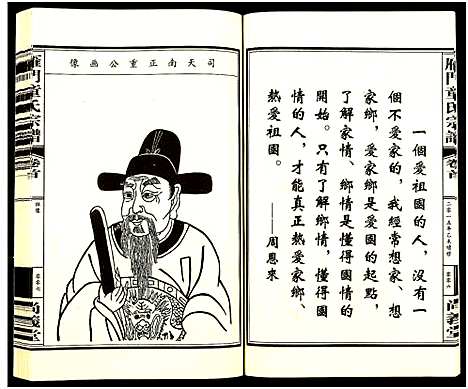 雁門童氏宗譜
卷首
二零一五年乙未續修
尚義堂
一個愛祖國的人，沒有一
個不愛家的，我經常想家、想
家鄉，愛家鄉是愛國的起點，
了解家情、鄉情是懂得國情的
開始。只有了解鄉情，懂得國
情的人，才能真正熱愛家鄉、
熱愛祖國。
——周恩來
司天南正重公画像
雁門童氏宗譜
卷首
尚義堂